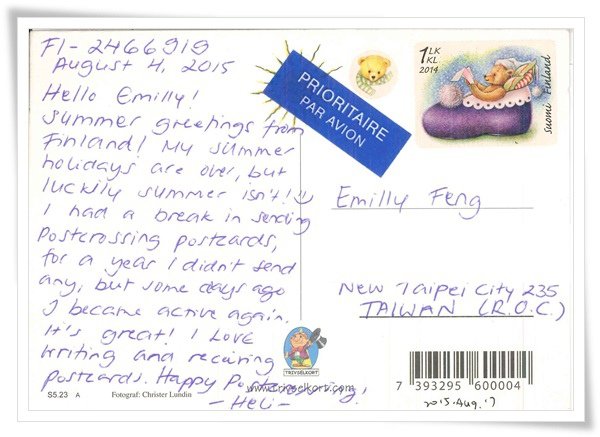 FI-2466919
August 4, 2015
Hello Emilly!
Summer greetings from
Finland! My summer
holidays are over, but
luckily summer isn't! :)
I had a break in sending
Postcrossing postcards,
for a year I didn't send
any, but some days ago
I became active again.
It's great! I love
writing and receiving
postcards. Happy Postcrossing!
- Heli -
S5.23 A Fotograf: Christer Lundin
PRIORITAIRE
PAR AVION
1 LK
KL
2014
Suomi Finland
Emilly Feng
New Taipei City 235
TAIWAN (R.O.C.)
TRIVSELKORT
www.trivselkort.com
7 393295 600004
2015. Aug. 17